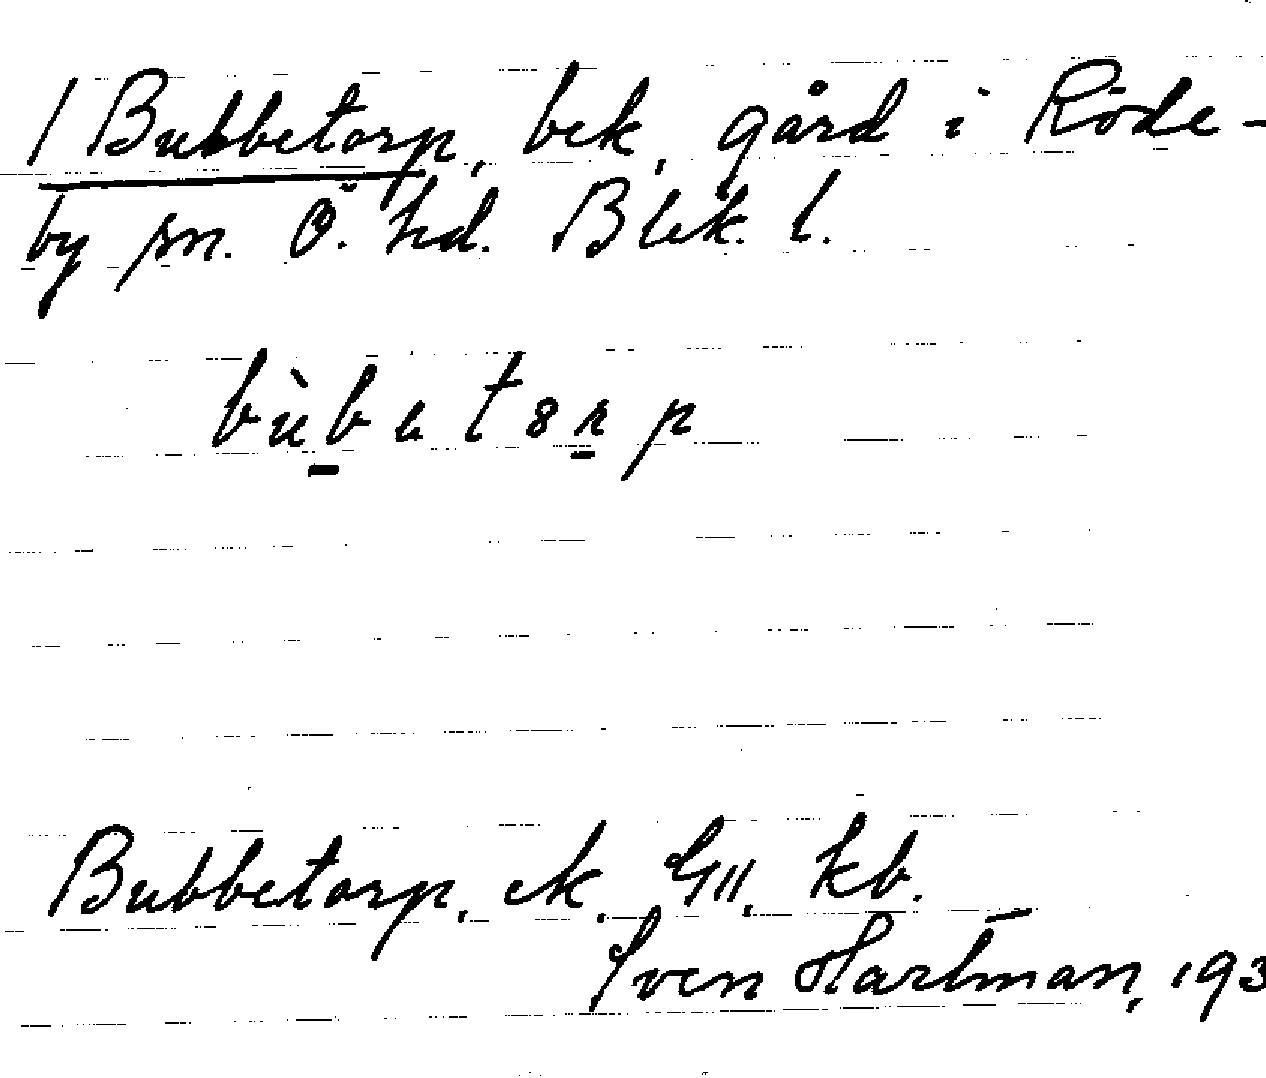 / Bubbetorp, bek, gård i Röde-
by sn. Ö. hd. Blek. l.
bùbetorp
Bubbetorp. ek. GII, kb.
Sven Hartman, 193